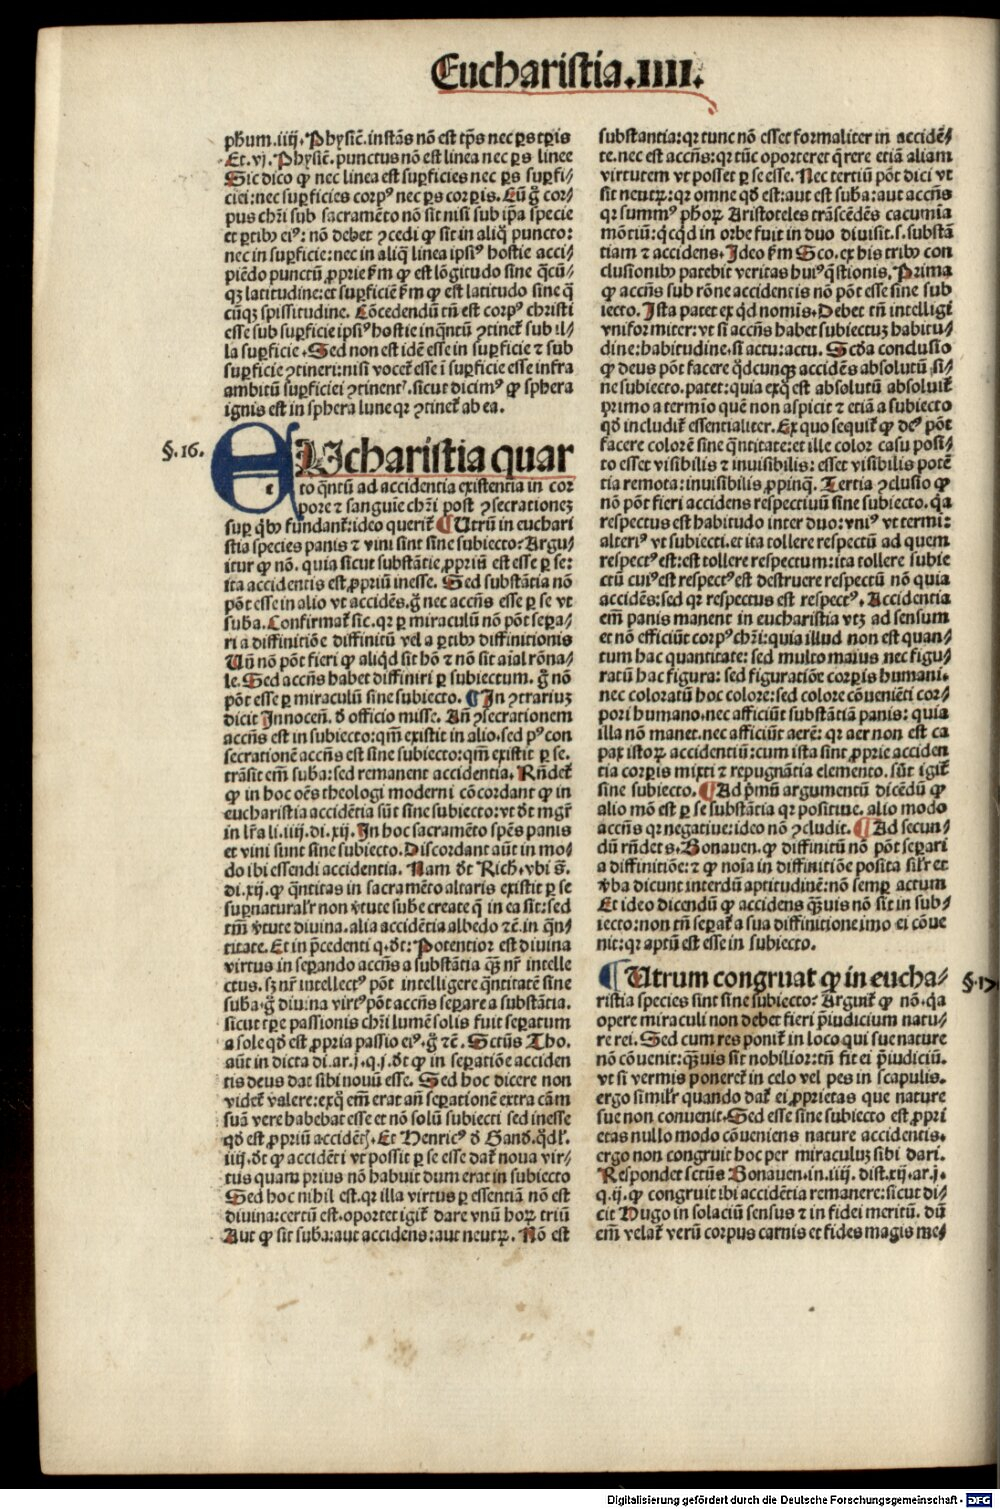 Eucharistia.IIII.
phum.iiij. Physic̄. instās nō est tp̄s nec ꝑs tꝑis
Et.vj. Physic̄. punctus nō est linea nec ꝑs linee
Sic dico ꝙ nec linea est suꝑficies nec ꝑs suꝑfi⸗
ciei: nec suꝑficies corpꝰ nec ꝑs corꝑis. Cū g̊ cor⸗
pus chr̄i sub sacramēto nō sit nisi sub ip̄a specie
et ꝑtibꝰ eiꝰ: nō debet ꝯcedi ꝙ sit in aliq̊ puncto:
nec in suꝑficie: nec in aliq̄ linea ipsiꝰ hostie acci⸗
piēdo punctū ꝓprie ẜm ꝙ est lōgitudo sine q̄cū⸗
qꝫ latitudine: et suꝑficiē ẜm ꝙ est latitudo sine q̄
cūqꝫ spissitudine. Cōcedendū tn̄ est corpꝰ christi
esse sub suꝑficie ipsiꝰ hostie inq̄ntū ꝯtinet᷑ sub il⸗
la suꝑficie. Sed non est idē esse in suꝑficie ⁊ sub
suꝑficie ꝯtineri: nisi vocet᷑ esse ī suꝑficie esse infra
ambitū suꝑficiei ꝯtinentꝭ. sicut dicimꝰ ꝙ sphera
ignis est in sphera lune qꝛ ꝯtinet᷑ ab ea.
§.16.
EUcharistia quar
to q̄ntū ad accidentia existentia in cor
pore ⁊ sanguine chr̄i post ꝯsecrationeꝫ
suꝑ q̇bꝰ fundant᷑: ideo querit᷑ ¶ Utrū in euchari
stia species panis ⁊ vini sint sine subiecto: Argu⸗
itur ꝙ nō. quia sicut substātie ꝓpriū est esse ꝑ se:
ita accidentis est ꝓpriū inesse. Sed substātia nō
pōt esse in alio vt accidēs. g̊ nec accn̄s esse ꝑ se vt
suba. Confirmat᷑ sic. qꝛ ꝑ miraculū nō pōt sepa⸗
ri a diffinitiōe diffinitū vel a ꝑtibꝰ diffinitionis
Uñ nō pōt fieri ꝙ aliqd̄ sit hō ⁊ nō sit aīal rōna⸗
le. Sed accn̄s habet diffiniri ꝑ subiectum. g̊ nō
pōt esse ꝑ miraculū sine subiecto. ¶ In ꝯtrariuꝫ
dicit Innocen̄. ď officio misse. Añ ꝯsecrationem
accn̄s est in subiecto: qm̄ existit in alio. sed pꝰ con
secrationē accn̄s est sine subiecto: qm̄ existit ꝑ se.
trāsit em̄ suba: sed remanent accidentia. Rn̄det᷑
ꝙ in hoc oēs theologi moderni cōcordant ꝙ in
eucharistia accidētia sūt sine subiecto: vt dt̄ mgr̄
in lr̄a li.iiij.di.xij. In hoc sacramēto spēs panis
et vini sunt sine subiecto. Discordant aūt in mo⸗
do ibi essendi accidentia. Nam dt̄ Rich. vbi s̄.
di.xij. ꝙ q̄ntitas in sacramēto altaris existit ꝑ se
suꝑnaturalr̄ non v̄tute sube create q̄ in ea sit: sed
tm̄ v̄tute divina. alia accidētia albedo ⁊c̄. in q̄n⸗
titate. Et in p̄cedenti q. dt̄: Potentior est divina
virtus in seꝑando accn̄s a substātia qꝫ nr̄ intelle
ctus. sꝫ nr̄ intellectꝰ pōt intelligere q̄ntitatē sine
suba. g̊ diuina virtꝰ pōt accn̄s seꝑare a substātia.
sicut tꝑe passionis chr̄i lumē solis fuit seꝑatum
a sole qd̄ est ꝓpria passio eiꝰ. g̊ ⁊c̄. Sctūs Tho.
aūt in dicta di.ar.j.q.j. dt̄ ꝙ in seꝑatiōe acciden
tis deus dat sibi nouū esse. Sed hoc dicere non
videt᷑ valere: exq̊ em̄ erat añ seꝑationē extra cām
suā vere habebat esse et nō solū subiecti sed inesse
qd̄ est ꝓpriū accidētꝭ. Et Henricꝰ ď Gand. q̇dl᷑.
iiij. dt̄ ꝙ accidēti vt possit ꝑ se esse dat᷑ noua vir⸗
tus quam prius nō habuit dum erat in subiecto
Sed hoc nihil est. qꝛ illa virtus ꝑ essentiā nō est
diuina: certū est. oportet igit᷑ dare vnū hoꝝ triū
Aut ꝙ sit suba: aut accidens: aut neutꝝ. Nō est
substantia: qꝛ tunc nō esset formaliter in accidē⸗
te. nec est accn̄s: qꝛ tūc oporteret q̄rere etiā aliam
virtutem vt posset ꝑ se esse. Nec tertiū pōt dici vt
sit neutꝝ: qꝛ omne qd̄ est: aut est suba: aut accn̄s
qꝛ summꝰ phoꝝ Aristoteles trāscēdēs cacumia
mōtiū: q̇cqd̄ in orbe fuit in duo diuisit. s. substā
tiam ⁊ accidens. Ideo ẜm Sco. ex his tribꝰ con
clusionibꝰ patebit veritas huiꝰ q̄stionis. Prima
ꝙ accn̄s sub rōne accidentis nō pōt esse sine sub
iecto. Ista patet ex qd̄ nomīs. Debet tn̄ intelligi
vniformiter: vt si accn̄s habet subiectuꝫ habitu⸗
dine: habitudine. si actu: actu. Scd̄a conclusio
ꝙ deus pōt facere q̇dcunqꝫ accidēs absolutū si⸗
ne subiecto. patet: quia exq̊ est absolutū absoluit᷑
primo a termīo quē non aspicit ⁊ etiā a subiecto
qd̄ includit᷑ essentialiter. Ex quo sequit᷑ ꝙ deꝰ pōt
facere colorē sine q̄ntitate: et ille color casu posi⸗
to esset visibilis ⁊ inuisibilis: esset visibilis potē
tia remota: inuisibilis ꝓpinq̄. Tertia ꝯclusio ꝙ
nō pōt fieri accidens respectiuū sine subiecto. q̄a
respectus est habitudo inter duo: vniꝰ vt termi:
alteriꝰ vt subiecti. et ita tollere respectū ad quem
respectꝰ est: est tollere respectum: ita tollere subie
ctū cuiꝰ est respectꝰ est destruere respectū nō quia
accidēs: sed qꝛ respectus est respectꝰ. Accidentia
em̄ panis manent in eucharistia vtꝫ ad sensum
et nō efficiūt corpꝰ chr̄i: quia illud non est quan⸗
tum hac quantitate: sed multo maius nec figu⸗
ratū hac figura: sed figuratiōe corꝑis humani.
nec coloratū hoc colore: sed colore cōueniēti cor⸗
pori humano. nec afficiūt substātiā panis: quia
illa nō manet. nec afficiūt aerē: qꝛ aer non est ca
pax istoꝝ accidentiū: cum ista sint ꝓprie acciden
tia corꝑis mixti ⁊ repugnātia elemento. sūt igit᷑
sine subiecto. ¶ Ad p̄mū argumentū dicēdū ꝙ
alio mō est ꝑ se substātia qꝛ positiue. alio modo
accn̄s qꝛ negatiue: ideo nō ꝯcludit. ¶ Ad secun⸗
dū rn̄det s. Bonauen. ꝙ diffinitū nō pōt seꝑari
a diffinitiōe: ⁊ ꝙ noīa in diffinitiōe posita silr̄ et
v̄ba dicunt interdū aptitudinē: nō semꝑ actum
Et ideo dicendū ꝙ accidens qꝫuis nō sit in sub⸗
iecto: non tn̄ seꝑat᷑ a sua diffinitione imo ei cōue
nit: qꝛ aptū est esse in subiecto.
¶ Utrum congruat ꝙ in eucha⸗
§.17
ristia species sint sine subiecto: Arguit᷑ ꝙ nō. q̄a
opere miraculi non debet fieri p̄iudicium natu⸗
re rei. Sed cum res ponit᷑ in loco qui sue nature
nō cōuenit: qꝫuis sit nobilior: tn̄ fit ei p̄iudiciū.
vt si vermis poneret᷑ in celo vel pes in scapulis.
ergo similr̄ quando dat᷑ ei ꝓprietas que nature
sue non conuenit. Sed esse sine subiecto est ꝓpri
etas nullo modo cōueniens nature accidentis.
ergo non congruit hoc per miraculuꝫ sibi dari.
Respondet sctūs Bonauen. in.iiij. dist.xij.ar.j.
q.ij. ꝙ congruit ibi accidētia remanere: sicut di⸗
cit Hugo in solaciū sensus ⁊ in fidei meritū. dū
em̄ velat᷑ verū corpus carnis et fides magis me⸗
Digitalisierung gefördert durch die Deutsche Forschungsgemeinschaft - DFG